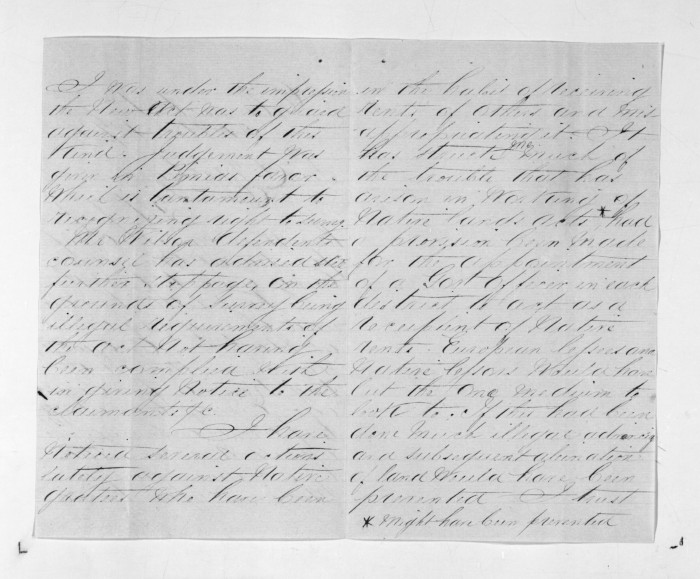 I was under the impression
the New Act was to guard
against troubles of this
kind. Judgement was
given in favor
which is tantamount to
recognizing right to survey
Mr Wilson defendents
counsel has advised the
further stoppage, on the
grounds of survey being
illegal requirements of
the act not having
been complied with
in giving Notice to the
claimants &c.
I have
noticed several actions
lately against Native
grantees who have been
in the habit of receiving
rents of others and mis
appropriating it. It
has struck me much of
the trouble that has
arisen in working of
Native Lands acts * had
a provision been made
for the appointment
of a Govt Officer in each
district to act as a
recipient of Native
rents. European lessees and
Native lessors would have
but the one medium to
look to. If this had been
done much illegal advancing
and subsequent alienation
of land would have been
prevented I trust
* might have been prevented